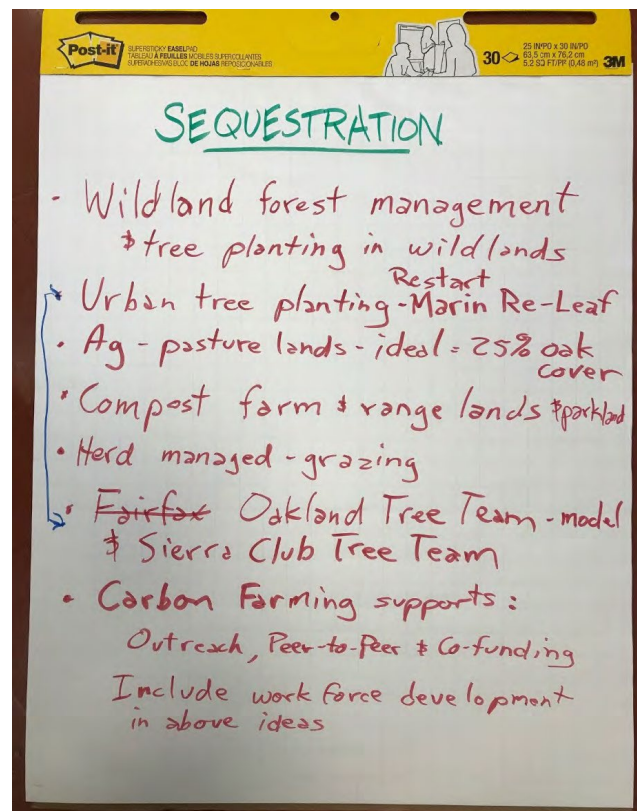 Post-it
SUPERSTICKY EASEL PAD
TABLEAU À FEUILLES MOBILES SUPERCOLLANTES
SUPERADHESIVAS BLOC DE HOJAS REPOSICIONABLES
30
25 IN/PO x 30 IN/PO
63,5 cm x 76,2 cm
5.2 SQ FT/PI² (0,48 m²)
3M
SEQUESTRATION
· Wildland forest management
& tree planting in wildlands
Restart
· Urban tree planting - Marin Re-Leaf
· Ag - pasture lands - ideal = 25% oak
cover
· Compost farm & range lands & parkland
· Herd managed - grazing
· Fairfax Oakland Tree Team - model
& Sierra Club Tree Team
· Carbon Farming supports:
Outreach, Peer-to-Peer & Co-funding
Include work force development
in above ideas